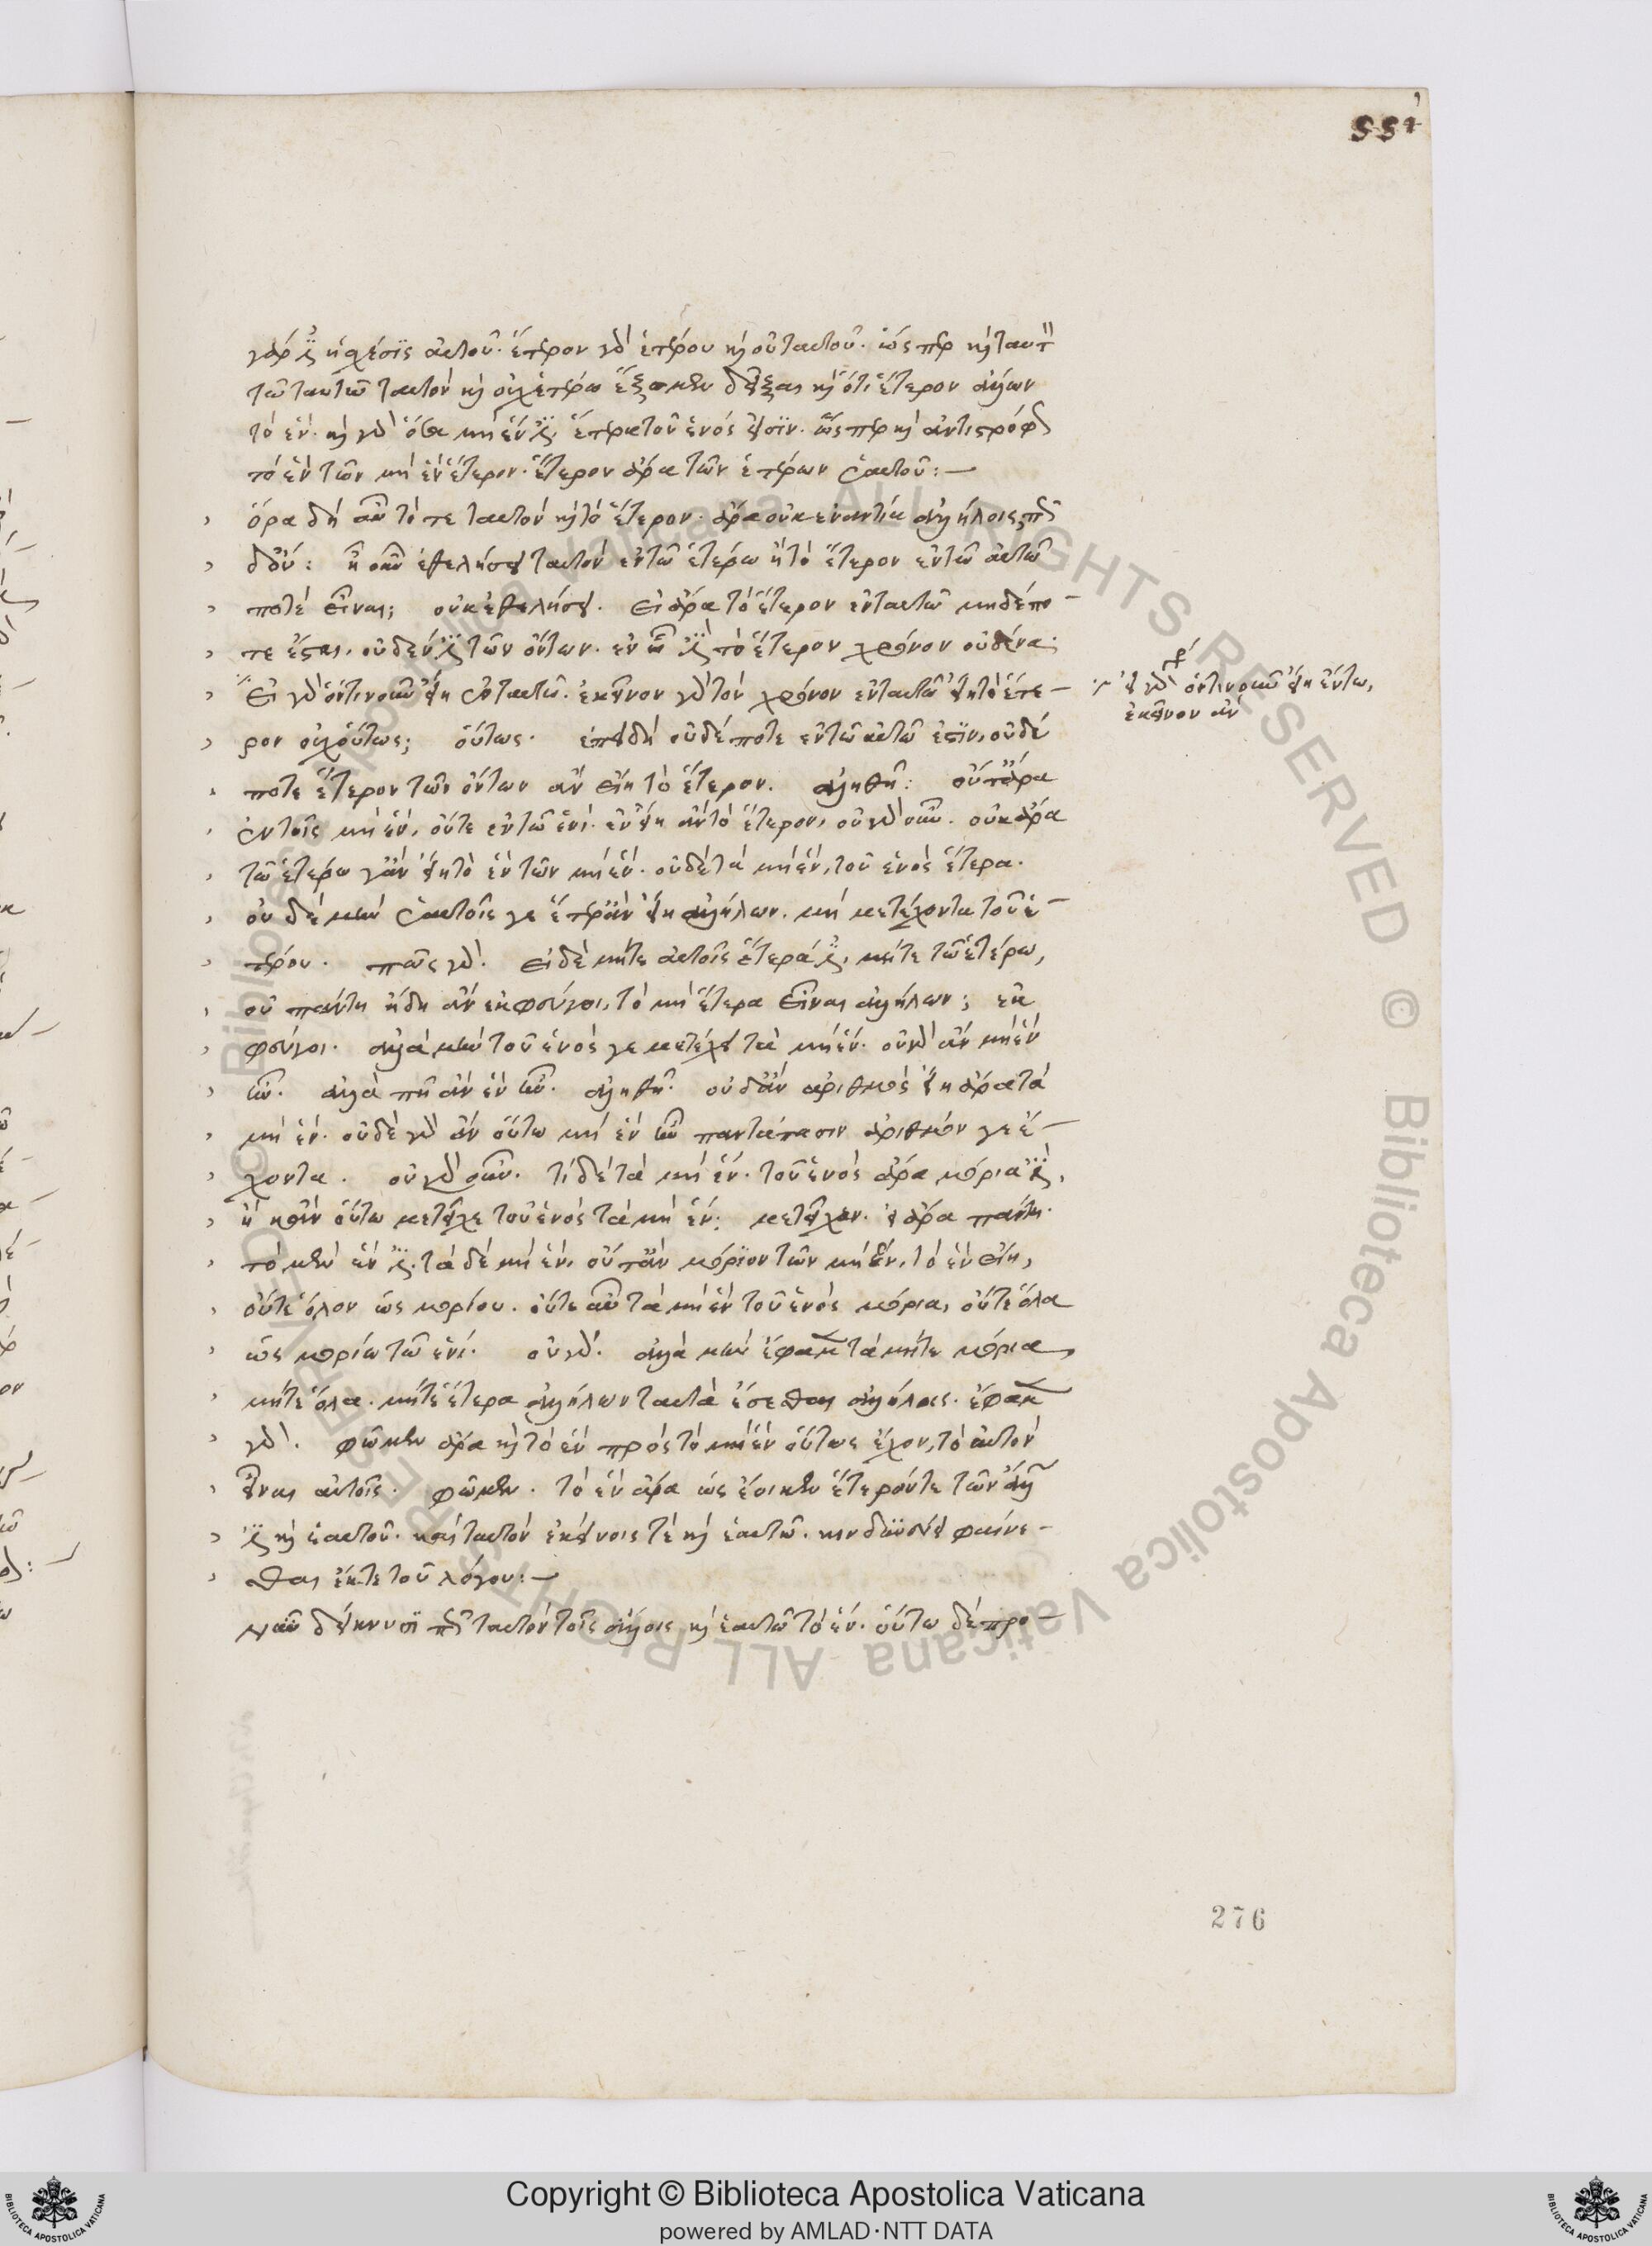 ϛϛι
γάρ ἐστι ἡ σχέσις αὐτοῦ. ἕτερον γὰρ ἑτέρου καὶ οὐ ταυτοῦ. ὥσπερ καὶ ταυτ
τῶ ταυτῶ ταυτὸν καὶ οὐχ ἑτέρω ἕξομεν δεῖξαι καὶ ὅτι ἕτερον ἄλλων
τὸ ἕν. καὶ γὰρ ὅσα μὴ ἕν ἐστι, ἕτερα τοῦ ἑνός εἰσιν. ὥσπερ καὶ ἀντιστρόφως
τὸ ἓν τῶν μὴ ἓν ἕτερον. ἕτερον ἄρα τῶν ἑτέρων ἑαυτοῦ:—
ὅρα δὴ αὐτό τε ταυτὸν καὶ τὸ ἕτερον. ἆρα οὐκ ἐναντία ἀλλήλοις; πῶς
δ' οὔ: ἦ οὖν ἐθελήσει ταυτὸν ἐν τῶ ἑτέρω ἢ τὸ ἕτερον ἐν τῶ αὐτῶ
ποτὲ εἶναι; οὐκ ἐθελήσει. εἰ ἄρα τὸ ἕτερον ἐν ταυτῶ μηδέπο-
τε ἔσται, οὐδέν ἐστι τῶν ὄντων. ἐν ᾧ ἐστὶ τὸ ἕτερον χρόνον οὐδένα.
Εἰ γὰρ ὁντινοῦν εἴη ἐν ταυτῶ. ἐκεῖνον γὰρ τὸν χρόνον ἐν ταυτῶ εἴη τὸ ἕτε-
ρον οὐχ οὕτως; οὕτως. ἐπειδὴ οὐδέποτε ἐν τῶ αὐτῶ ἐστιν, οὐδέ
ποτε ἕτερον τῶν ὄντων ἂν εἴη τὸ ἕτερον. ἀληθῆ: οὔτ' ἄρα
ἐν τοῖς μὴ ἕν, οὔτε ἐν τῶ ἑνὶ. ἐνείη ἂν τὸ ἕτερον, οὐ γὰρ οὖν. οὐκ ἄρα
τῶ ἑτέρω γ' ἂν εἴη τὸ ἓν τῶν μὴ ἕν. οὐδὲ τὰ μὴ ἕν, τοῦ ἑνὸς ἕτερα.
οὐ δὲ μὴν ἑαυτοῖς γε ἕτερ' ἂν εἴη ἀλλήλων. μὴ μετέχοντα τοῦ ἑ-
τέρου. πῶς γάρ. εἰ δὲ μήτε αὐτοῖς ἕτερά ἐστι, μήτε τῶ ἑτέρω,
οὐ πάντη ἤδη ἂν ἐκφεύγοι, τὸ μὴ ἕτερα εἶναι ἀλλήλων; ἐκ
φεύγοι. ἀλλὰ μὴν τοῦ ἑνός γε μετέχει τὰ μὴ ἕν. οὐ γὰρ ἂν μὴ ἓν
ἦν. ἀλλὰ πῆ ἂν ἓν ἦν. ἀληθῆ. οὐδ' ἂν ἀριθμὸς εἴη ἄρα τὰ
μὴ ἕν. οὐδὲ γὰρ ἂν οὕτω μὴ ἓν ἦν παντάπασιν ἀριθμόν γε ἔ-
χοντα. οὐ γὰρ οὖν. τί δὲ τὰ μὴ ἕν. τοῦ ἑνὸς ἄρα μόριά ἐστι,
ἢ κἂν οὕτω μετεῖχε τοῦ ἑνὸς τὰ μὴ ἕν; μετεῖχεν. εἰ ἄρα πάντη.
τὸ μὲν ἕν ἐστι. τὰ δὲ μὴ ἕν, οὔτ' ἂν μόριον τῶν μὴ ἕν, τὸ ἓν εἴη,
οὔτε ὅλον ὡς μορίου. οὔτε αὖ τὰ μὴ ἓν τοῦ ἑνὸς μόρια, οὔτε ὅλα
ὡς μορίω τῶ ἑνί. οὐ γάρ. ἀλλὰ μὴν ἔφαμεν τὰ μήτε μόρια
μήτε ὅλα. μήτε ἕτερα ἀλλήλων ταυτὰ ἔσεσθαι ἀλλήλοις. ἔφαμεν
γάρ. φῶμεν ἄρα καὶ τὸ ἓν πρὸς τὸ μὴ ἓν οὕτως ἔχον, τὸ αὐτὸν
εἶναι αὐτοῖς. φῶμεν. τὸ ἓν ἄρα ὡς ἔοικεν ἕτερόν τε τῶν ἄλλων
ἐστὶ καὶ ἑαυτοῦ. καὶ ταυτὸν ἐκείνοις τὲ καὶ ἑαυτῶ. κινδυνεύει φαίνε-
σθαι ἔκ τε τοῦ λόγου:—
νῦν δείκνυσι πῶς ταυτὸν τοῖς ἄλλοις καὶ ἑαυτῶ τὸ ἕν. οὕτω δὲ προ-
εἰ γὰρ ὁντινοῦν εἴη ἔν τω,
ἐκεῖνον ἂν
276
Copyright © Biblioteca Apostolica Vaticana
powered by AMLAD·NTT DATA